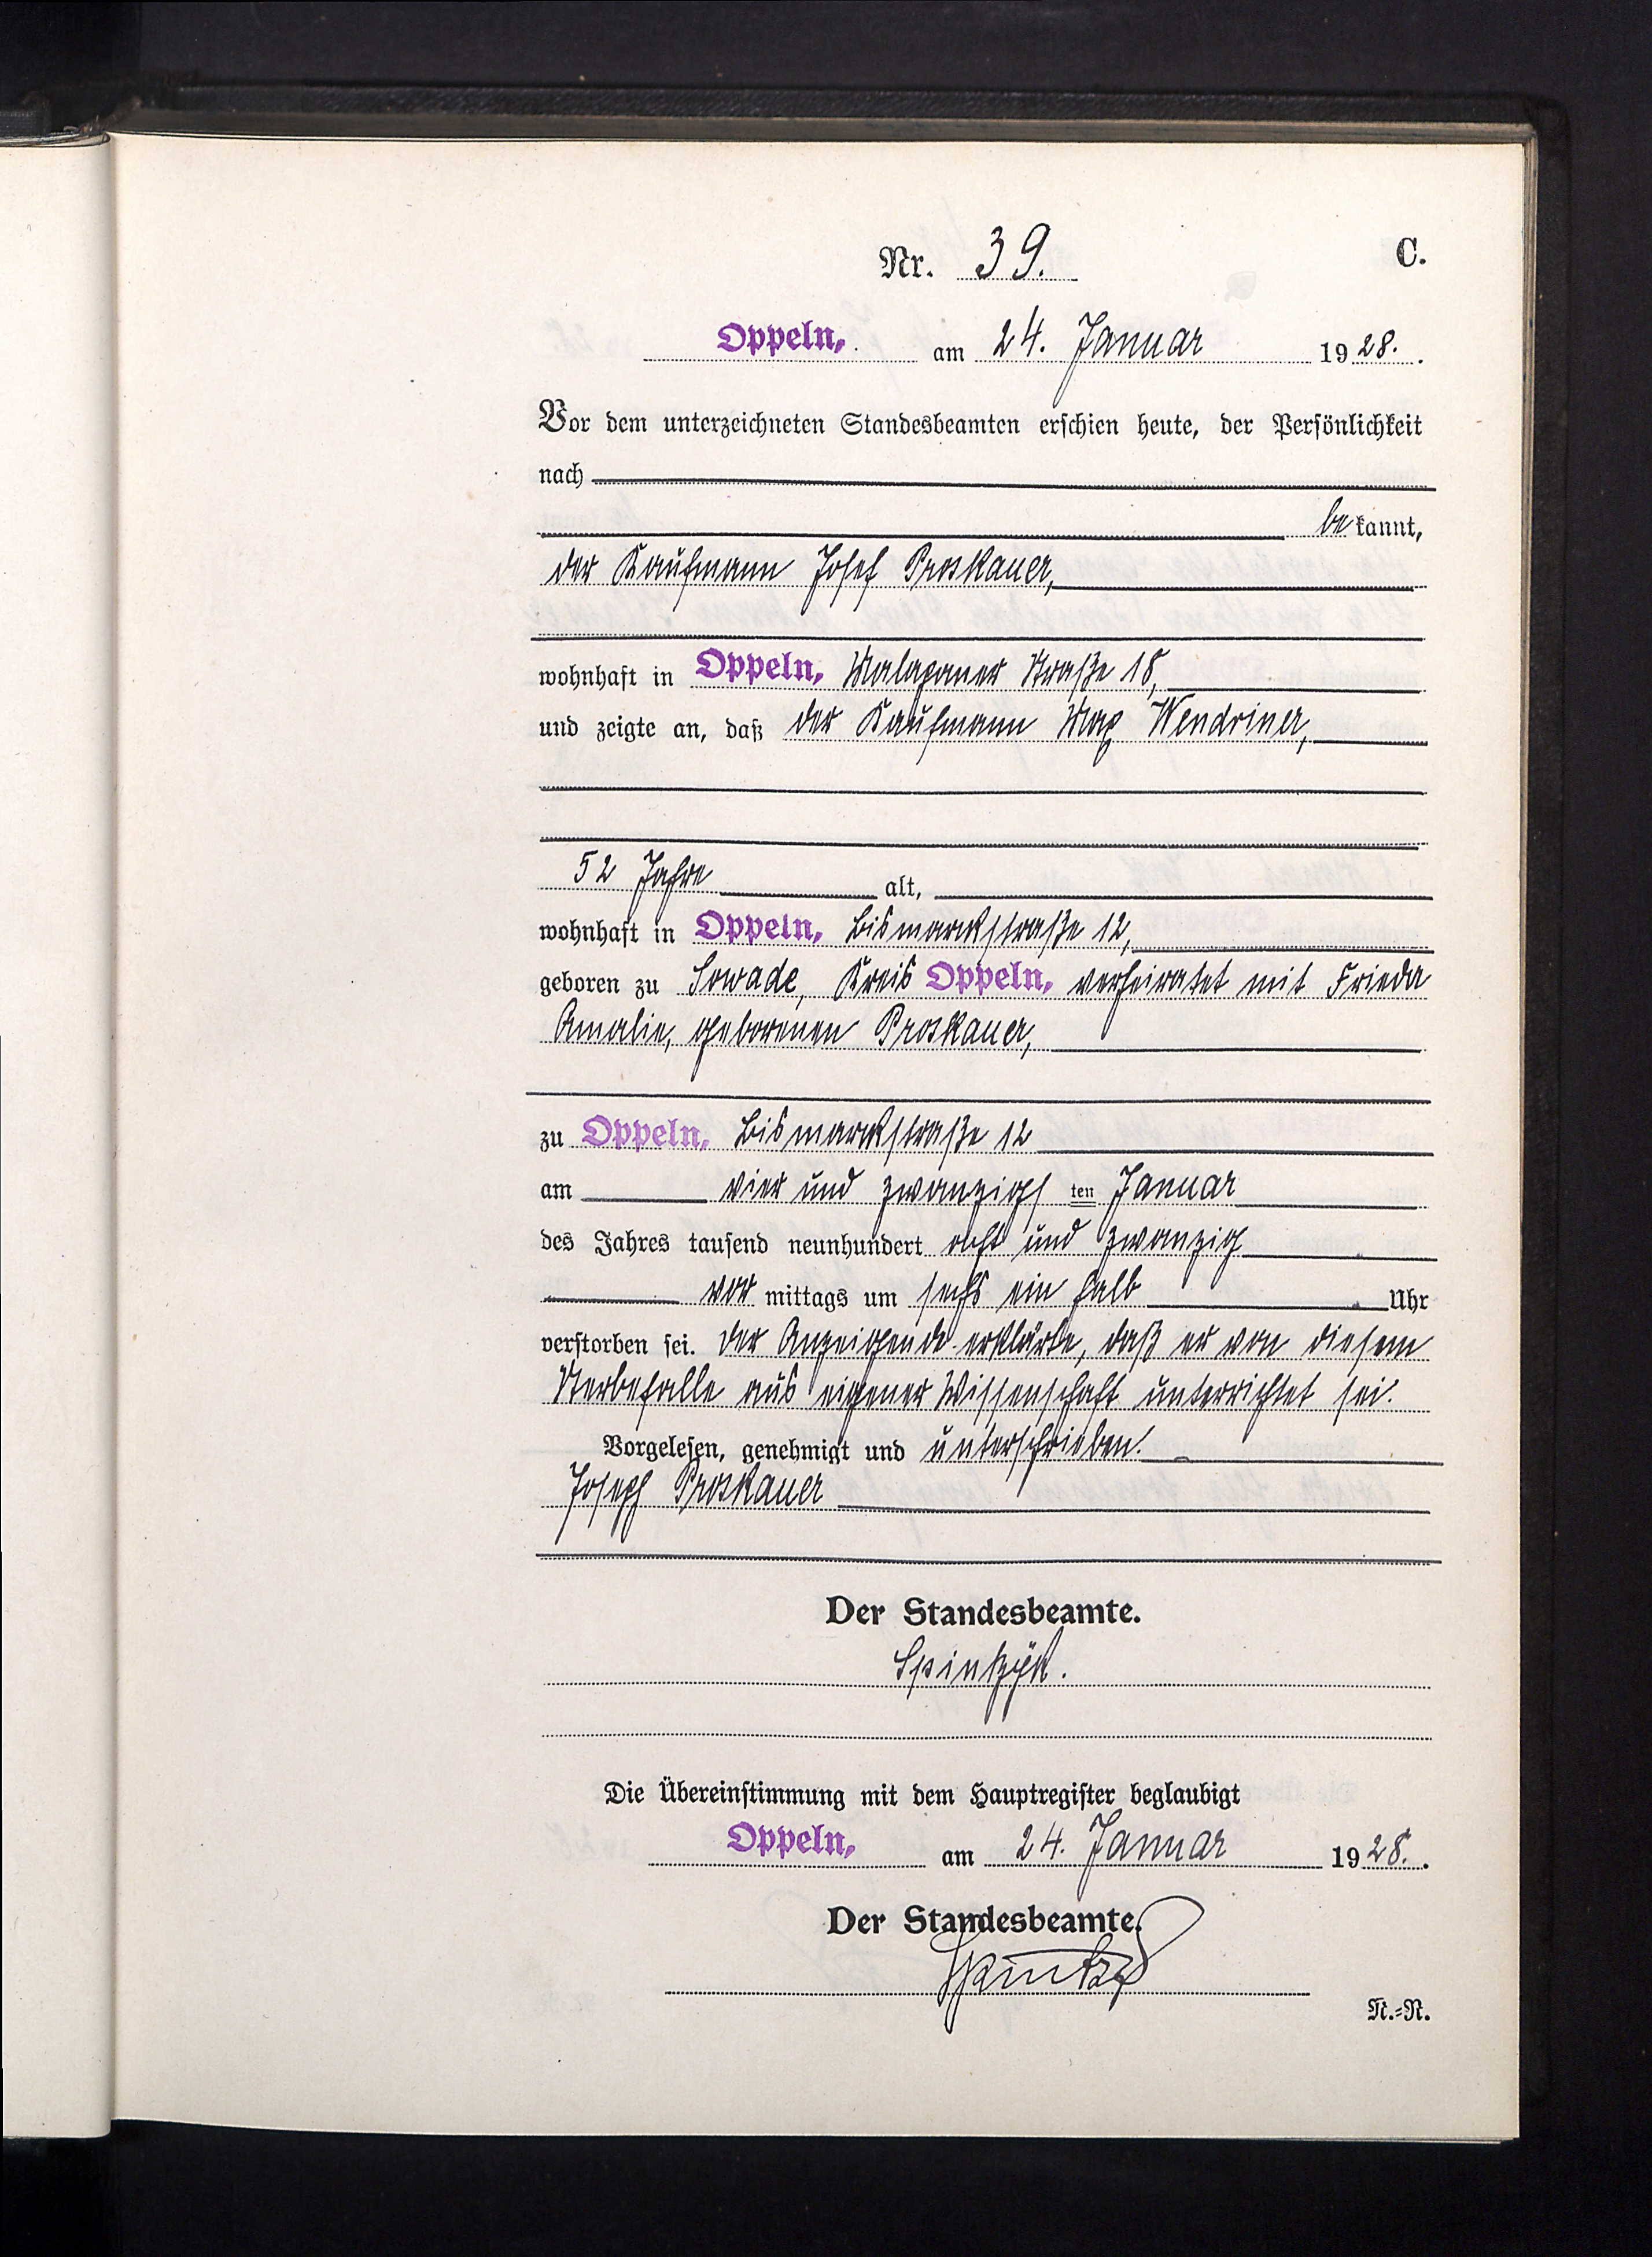 Nr. 39.
C.
Oppeln, am 24. Januar 1928.
Vor dem unterzeichneten Standesbeamten erschien heute, der Persönlichkeit
nach
bekannt,
der Kaufmann Josef Proskauer,
wohnhaft in Oppeln, Malapaner Straße 18,
und zeigte an, daß der Kaufmann Max Wendriner,
52 Jahre alt,
wohnhaft in Oppeln, Bismarckstraße 12,
geboren zu Sowade, Kreis Oppeln, verheiratet mit Frieda
Amalie, geborenen Proskauer,
zu Oppeln, Bismarckstraße 12
am vier und zwanzigsten Januar
des Jahres tausend neunhundert acht und zwanzig
vor mittags um sechs ein halb Uhr
verstorben sei. Der Anzeigende erklärte, daß er von diesem
Sterbefalle aus eigener Wissenschaft unterrichtet sei.
Vorgelesen, genehmigt und unterschrieben.
Joseph Proskauer
Der Standesbeamte.
Die Übereinstimmung mit dem Hauptregister beglaubigt
Oppeln, am 24. Januar 1928.
Der Standesbeamte.
N.=R.